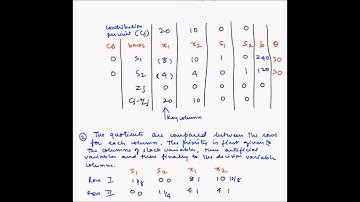 contribution per unit (Cj) 20 10 0 0
CB basis x1 x2 S1 S2 b θ
0 S1 (8) 10 1 0 240 30
0 S2 (4) 4 0 1 120 30
Zj 0 0 0 0
Cj-Zj 20 10 0 0
↑ key column
② The quotients are compared between the rows
for each column. The priority is first given to
the columns of slack variables, then artificial
variables and then finally to the decision variable
columns.
S1 S2 x1 x2
Row I 1/8 0 0 8/ 10 10/8
Row II 0 0 1/4 4/ 4/